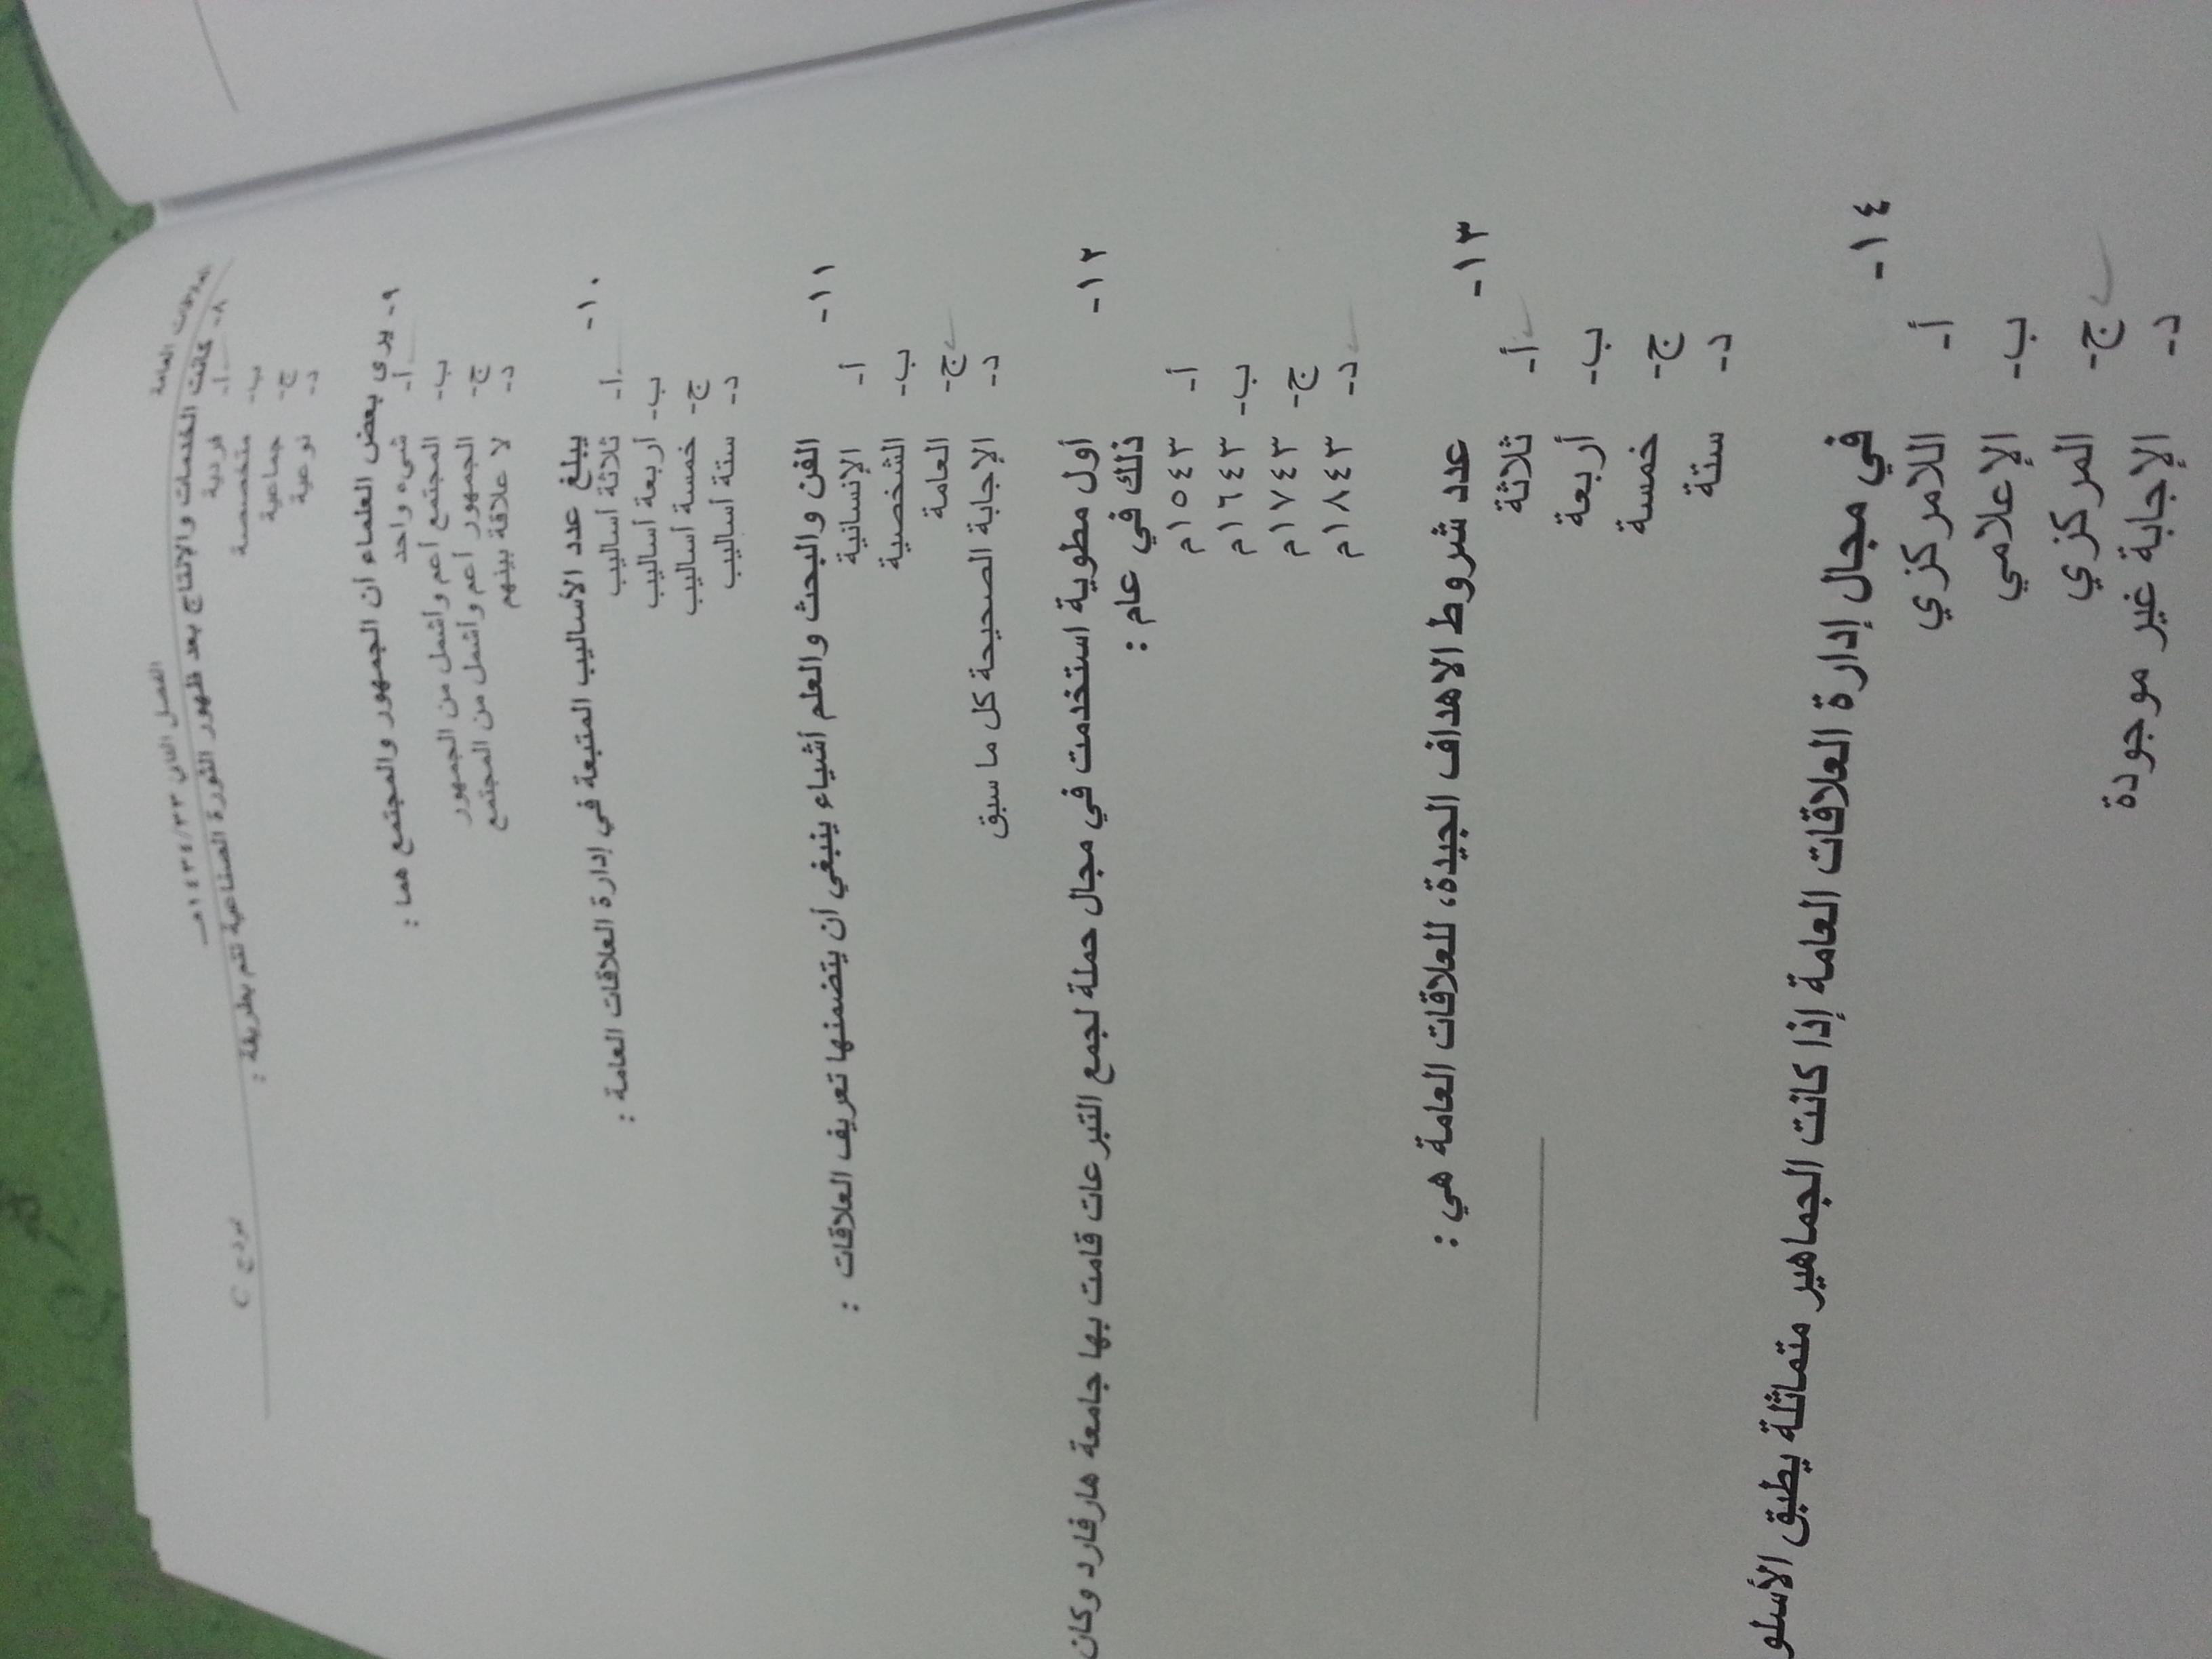 العلاقات العامة الفصل الثاني ١٤٣٤/٣٣هـ نموذج C
٨- كانت الخدمات والانتاج بعد ظهور الثورة الصناعية تتم بطريقة :
أ- فردية
ب- متخصصة
ج- جماعية
د- نوعية
٩- يرى بعض العلماء ان الجمهور والمجتمع هما :
أ- شيء واحد
ب- المجتمع أعم وأشمل من الجمهور
ج- الجمهور أعم وأشمل من المجتمع
د- لا علاقة بينهم
١٠- يبلغ عدد الأساليب المتبعة في إدارة العلاقات العامة :
أ- ثلاثة أساليب
ب- أربعة أساليب
ج- خمسة أساليب
د- ستة أساليب
١١- الفن والبحث والعلم أشياء ينبغي أن يتضمنها تعريف العلاقات :
أ- الإنسانية
ب- الشخصية
ج- العامة
د- الإجابة الصحيحة كل ما سبق
١٢- أول مطوية استخدمت في مجال حملة لجمع التبرعات قامت بها جامعة هارفارد وكان
ذلك في عام :
أ- ١٥٤٣م
ب- ١٦٤٣م
ج- ١٧٤٣م
د- ١٨٤٣م
١٣- عدد شروط الاهداف الجيدة، للعلاقات العامة هي :
أ- ثلاثة
ب- أربعة
ج- خمسة
د- ستة
١٤- في مجال إدارة العلاقات العامة إذا كانت الجماهير متماثلة يطبق الأسلو
أ- اللامركزي
ب- الإعلامي
ج- المركزي
د- الإجابة غير موجودة